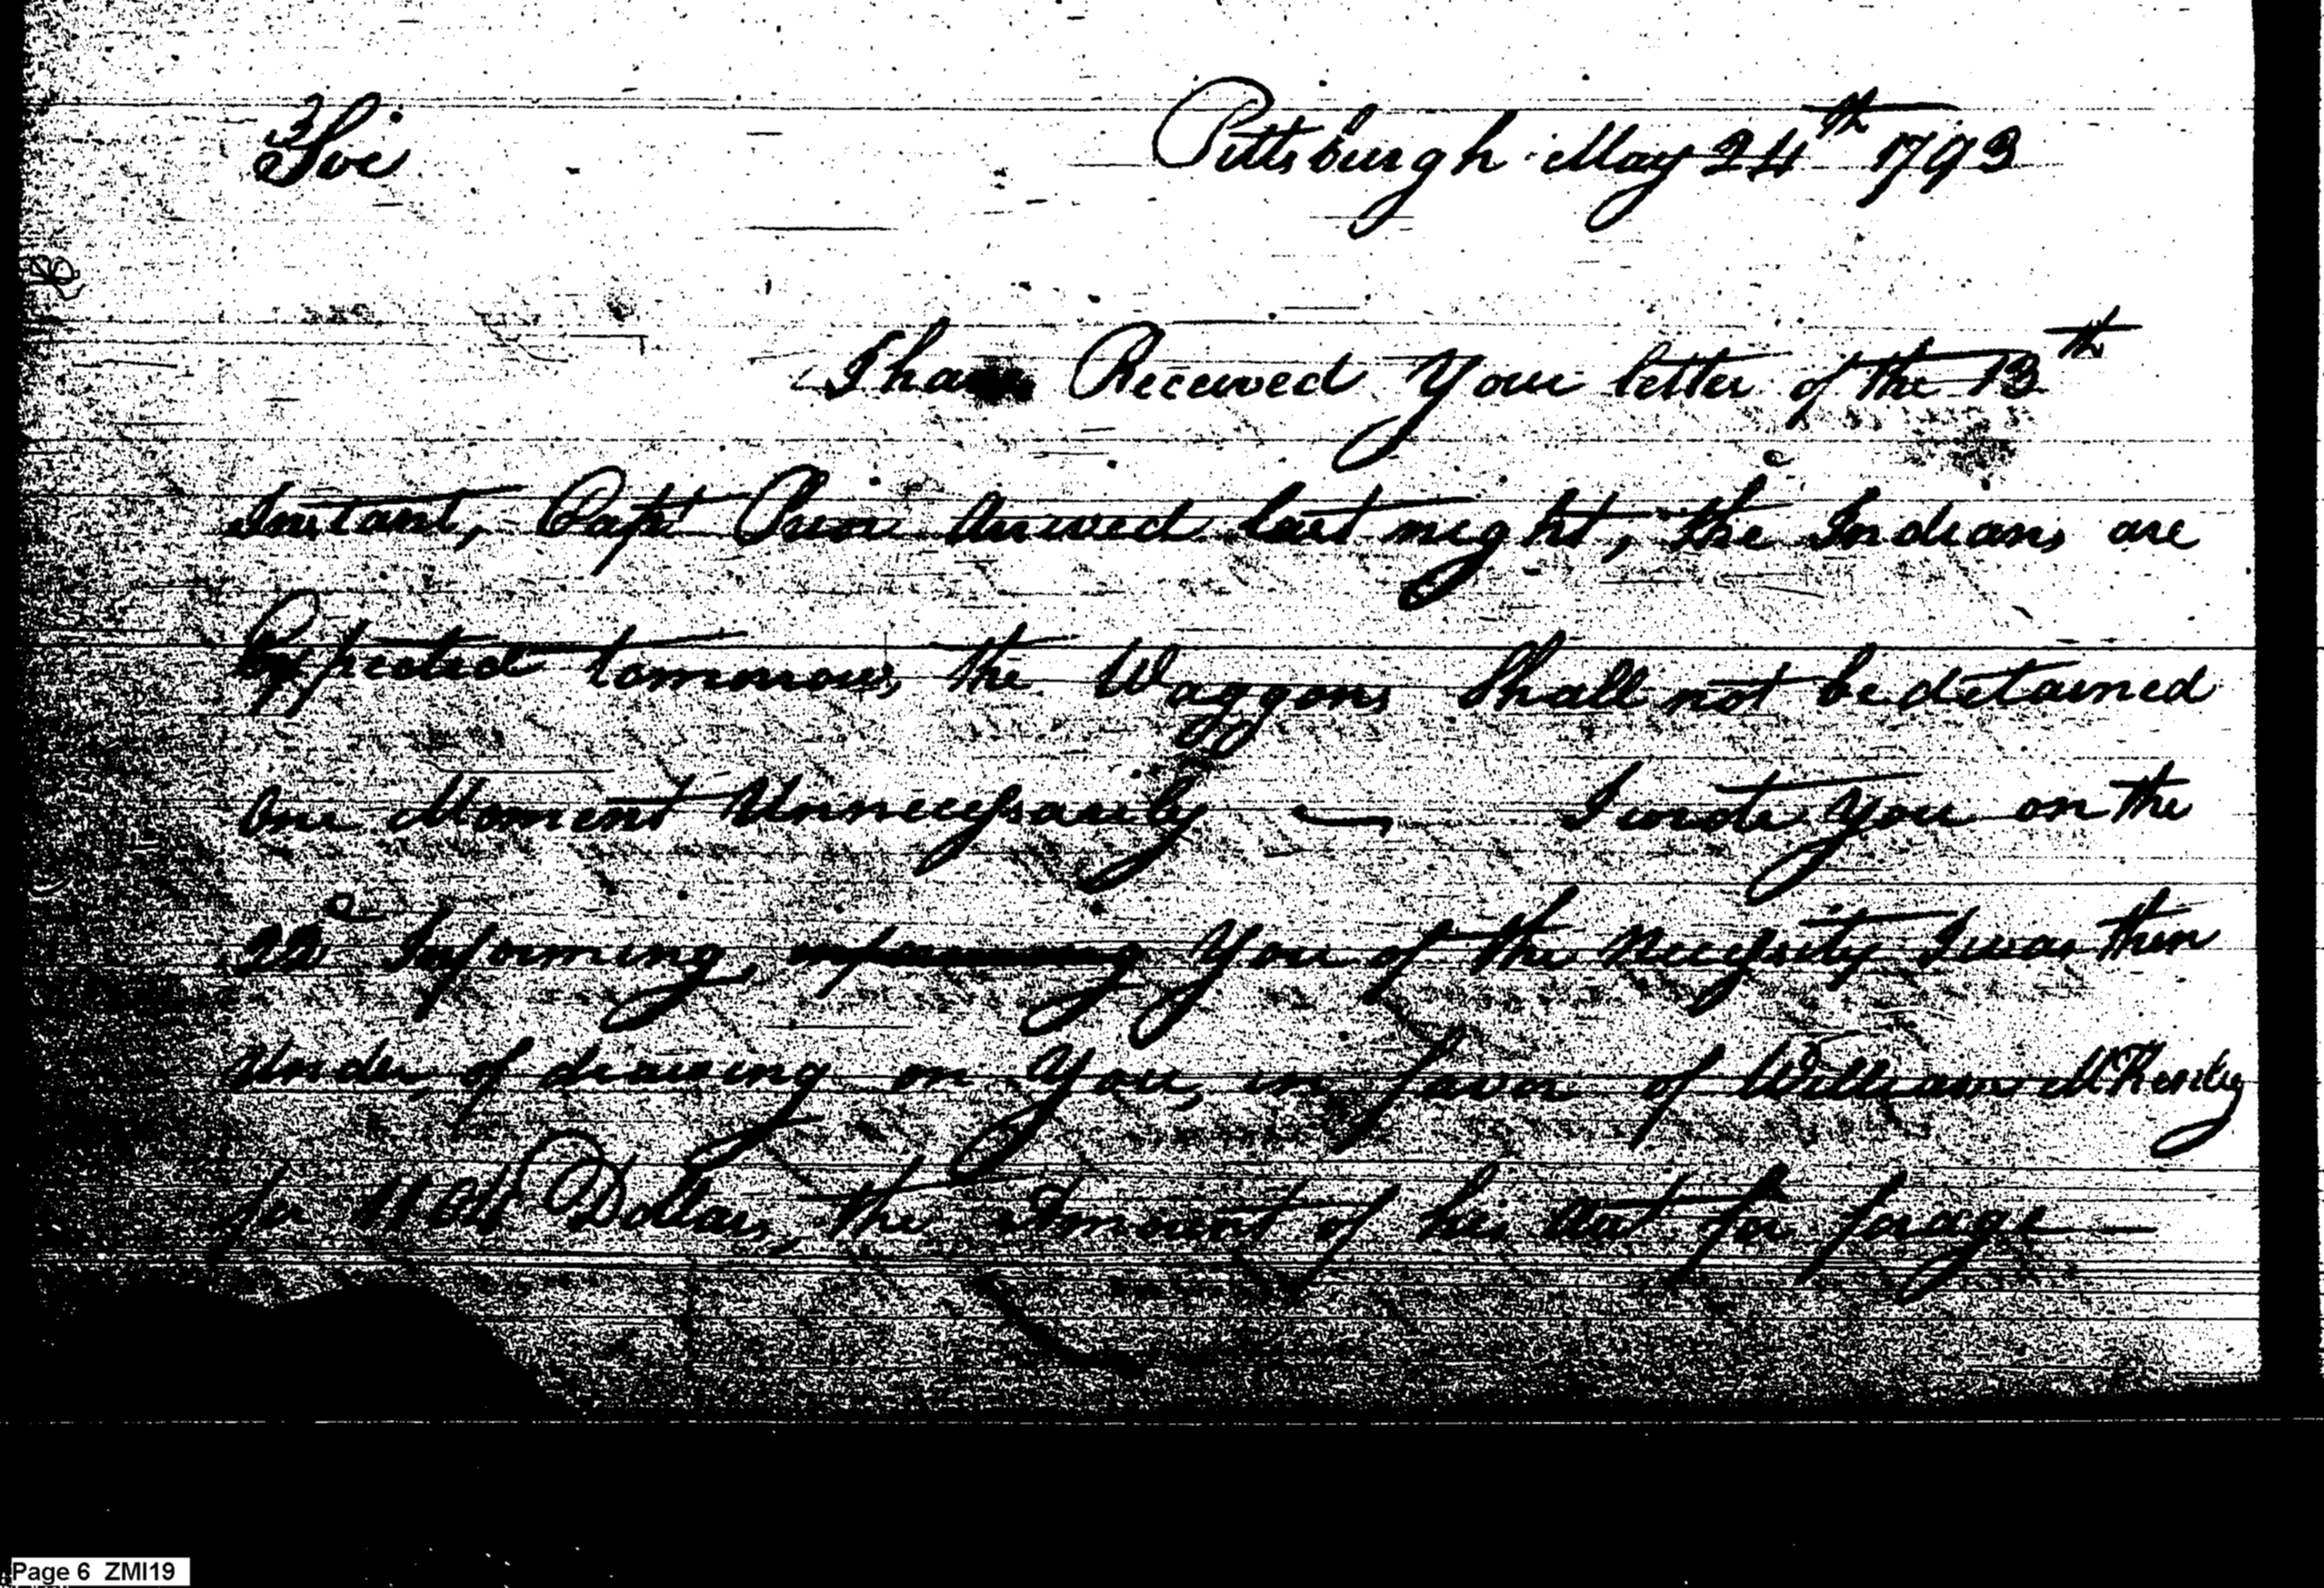 Sir Pittsburgh May 24th 1793
I have Received Your letter of the 13th
Instant, Capt Prior Arrived last night, the Indians are
Expected tomorrow, the Waggons Shall not be detained
One Moment Unnecessarily — I wrote You on the
22d Informing informing You of the Necessity I was then
Under, of drawing on You, in favor of William
for Dollars, the Amount of his Act for forage —
Page 6 ZMI19